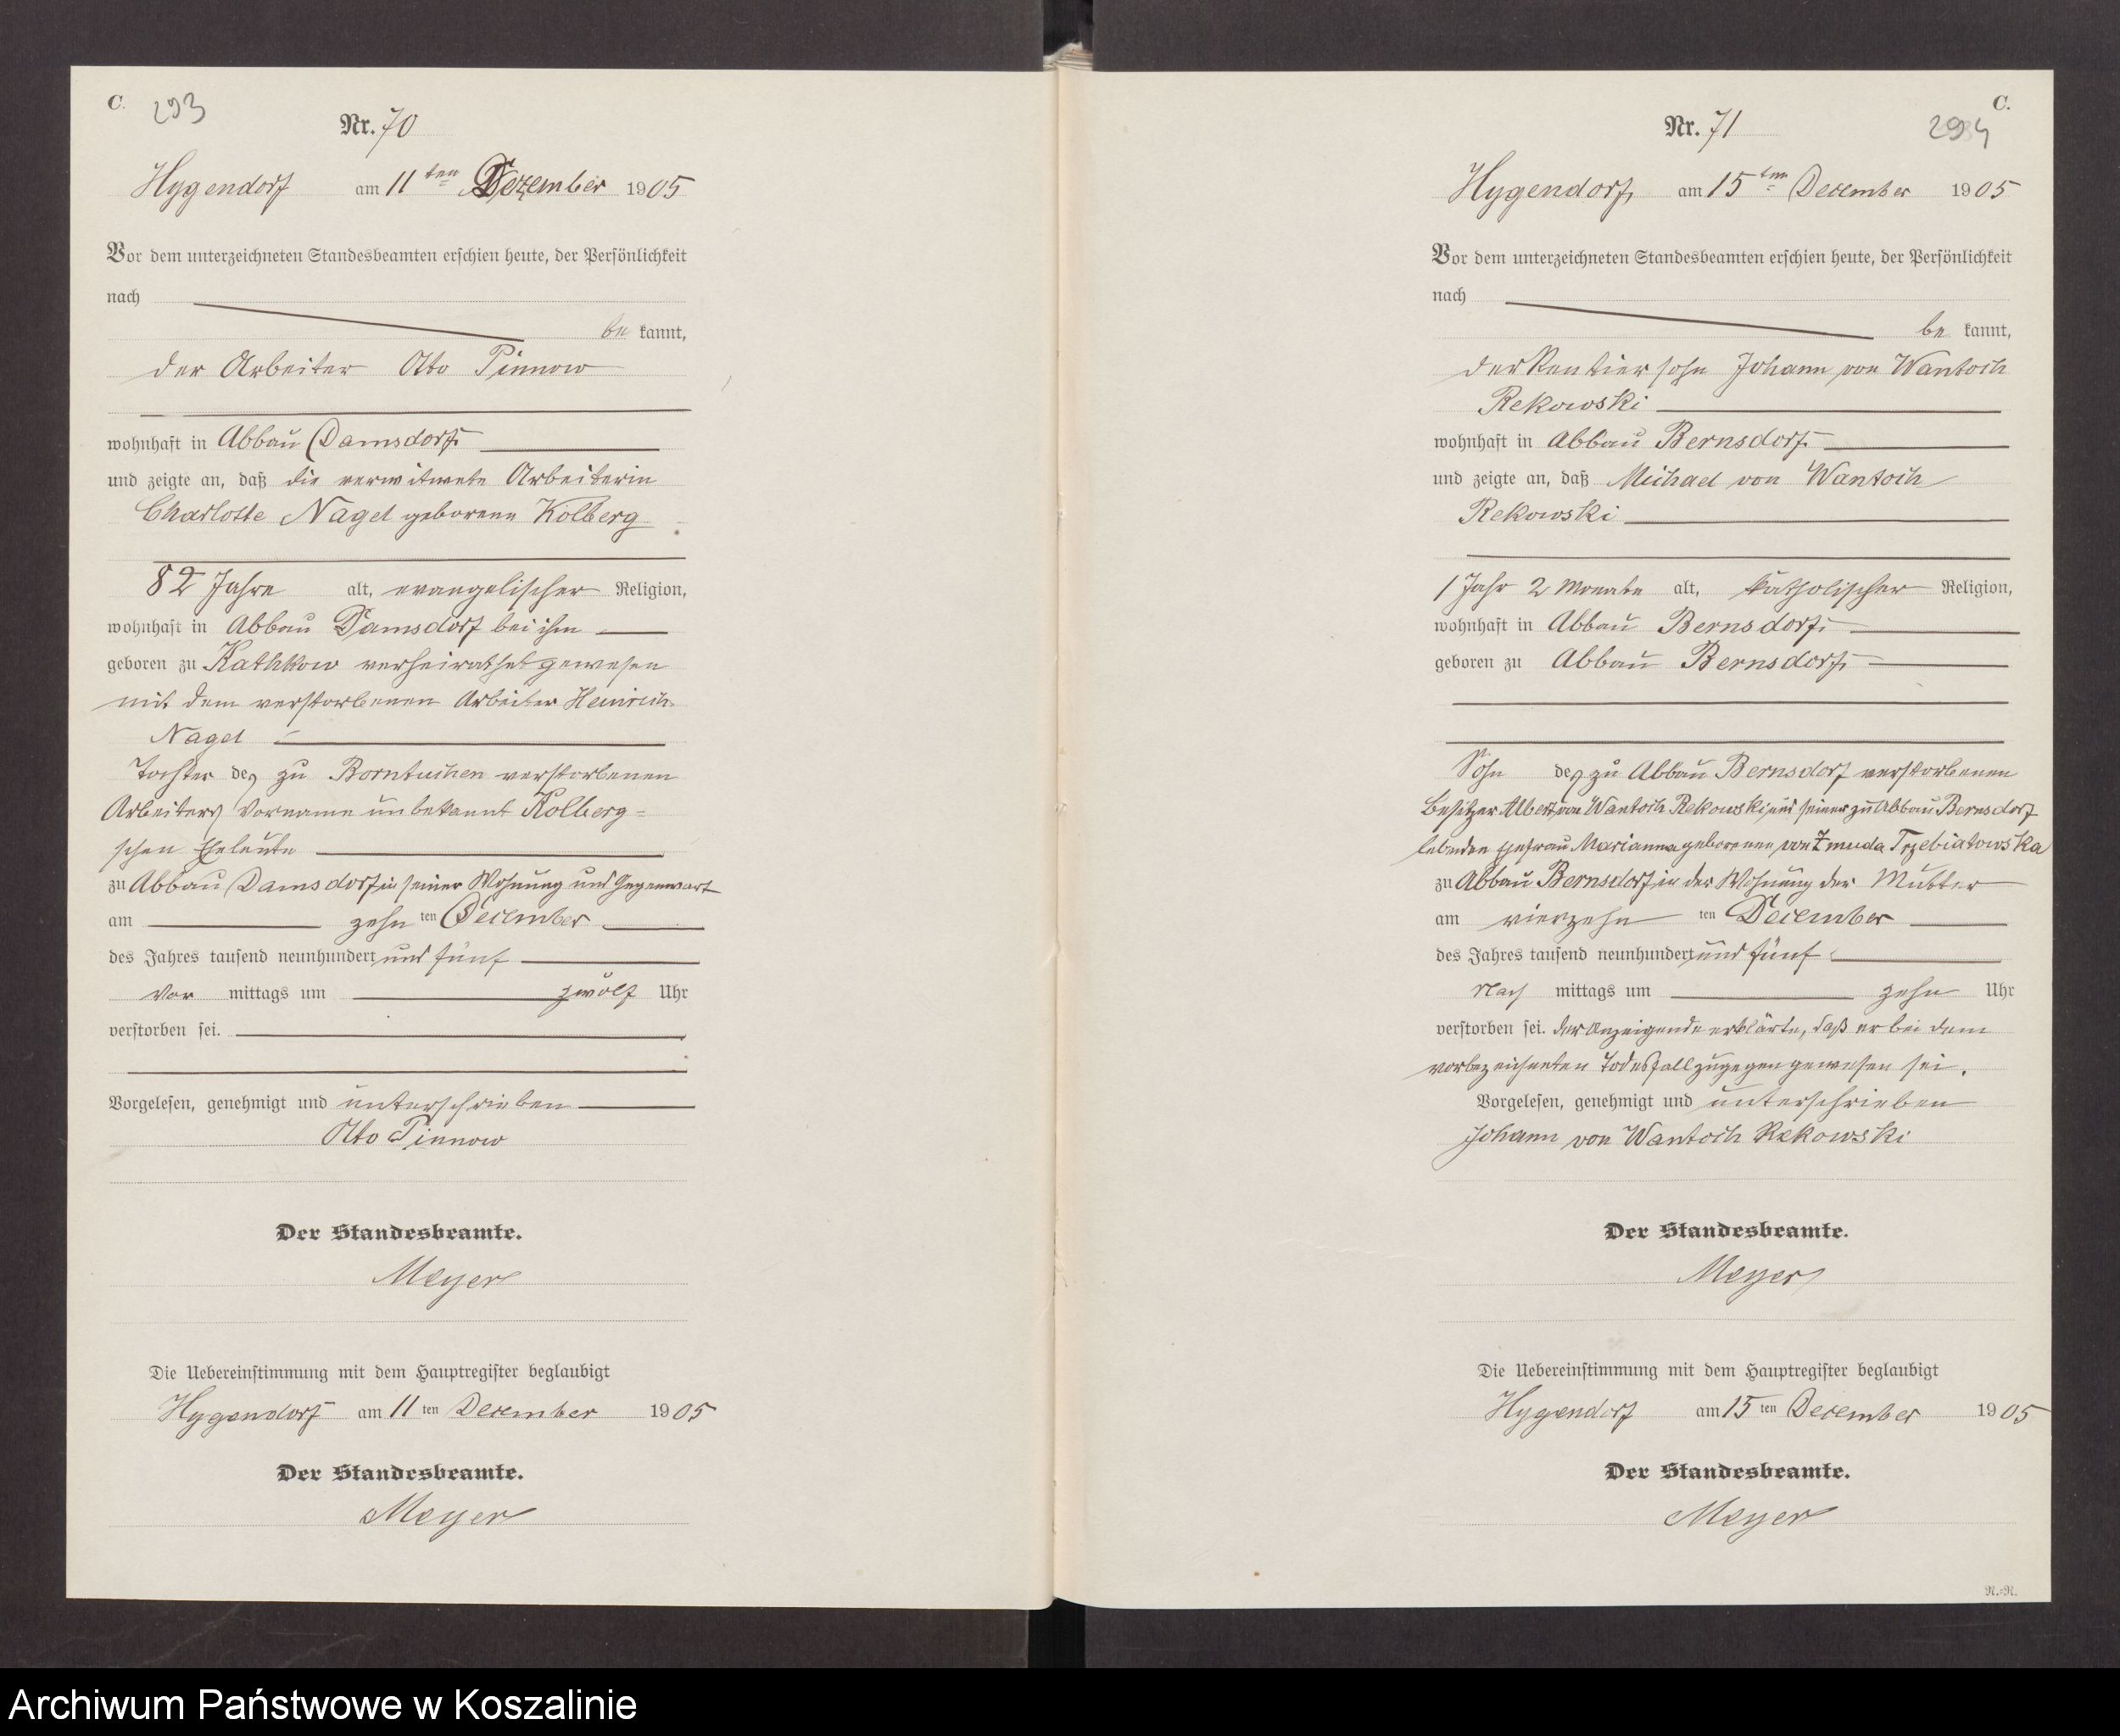 C.
293
Nr. 70
Hygendorf am 11ten Dezember 1905
Vor dem unterzeichneten Standesbeamten erschien heute, der Persönlichkeit
nach
be kannt,
der Arbeiter Otto Pinnow
wohnhaft in Abbau Damsdorf
und zeigte an, daß die verwitwete Arbeiterin
Charlotte Nagel geborene Kolberg
82 Jahre alt, evangelischer Religion,
wohnhaft in Abbau Damsdorf bei ihm
geboren zu Kathkow verheirathet gewesen
mit dem verstorbenen Arbeiter Heinrich
Nagel
Tochter der zu Borntuchen verstorbenen
Arbeiters Vorname unbekannt Kolberg=
schen Eheleute
zu Abbau Damsdorf in seiner Wohnung und Gegenwart
am zehn ten December
des Jahres tausend neunhundert und fünf
Vor mittags um zwölf Uhr
verstorben sei.
Vorgelesen, genehmigt und unterschrieben
Otto Pinnow
Der Standesbeamte.
Meyer
Die Uebereinstimmung mit dem Hauptregister beglaubigt
Hygendorf am 11 ten December 1905
Der Standesbeamte.
Meyer
C.
294
Nr. 71
Hygendorf, am 15ten December 1905
Vor dem unterzeichneten Standesbeamten erschien heute, der Persönlichkeit
nach
be kannt,
der Rentiersohn Johann von Wantoch
Rekowski
wohnhaft in Abbau Bernsdorf
und zeigte an, daß Michael von Wantoch
Rekowski
1 Jahr 2 Monate alt, katholischer Religion,
wohnhaft in Abbau Bernsdorf
geboren zu Abbau Bernsdorf
Sohn des zu Abbau Bernsdorf verstorbenen
Besitzer Albert von Wantoch Rekowski und seiner zu Abbau Bernsdorf
lebenden Ehefrau Marianna geborenen von Zmuda Trzebiatowska
zu Abbau Bernsdorf in der Wohnung der Mutter
am vierzehn ten December
des Jahres tausend neunhundert und fünf
Nach mittags um zehn Uhr
verstorben sei. Der Anzeigende erklärte, daß er bei dem
vorbezeichneten Todesfall zugegen gewesen sei.
Vorgelesen, genehmigt und unterschrieben
Johann von Wantoch Rekowski
Der Standesbeamte.
Meyer
Die Uebereinstimmung mit dem Hauptregister beglaubigt
Hygendorf am 15 ten December 1905
Der Standesbeamte.
Meyer
R.-R.
Archiwum Państwowe w Koszalinie